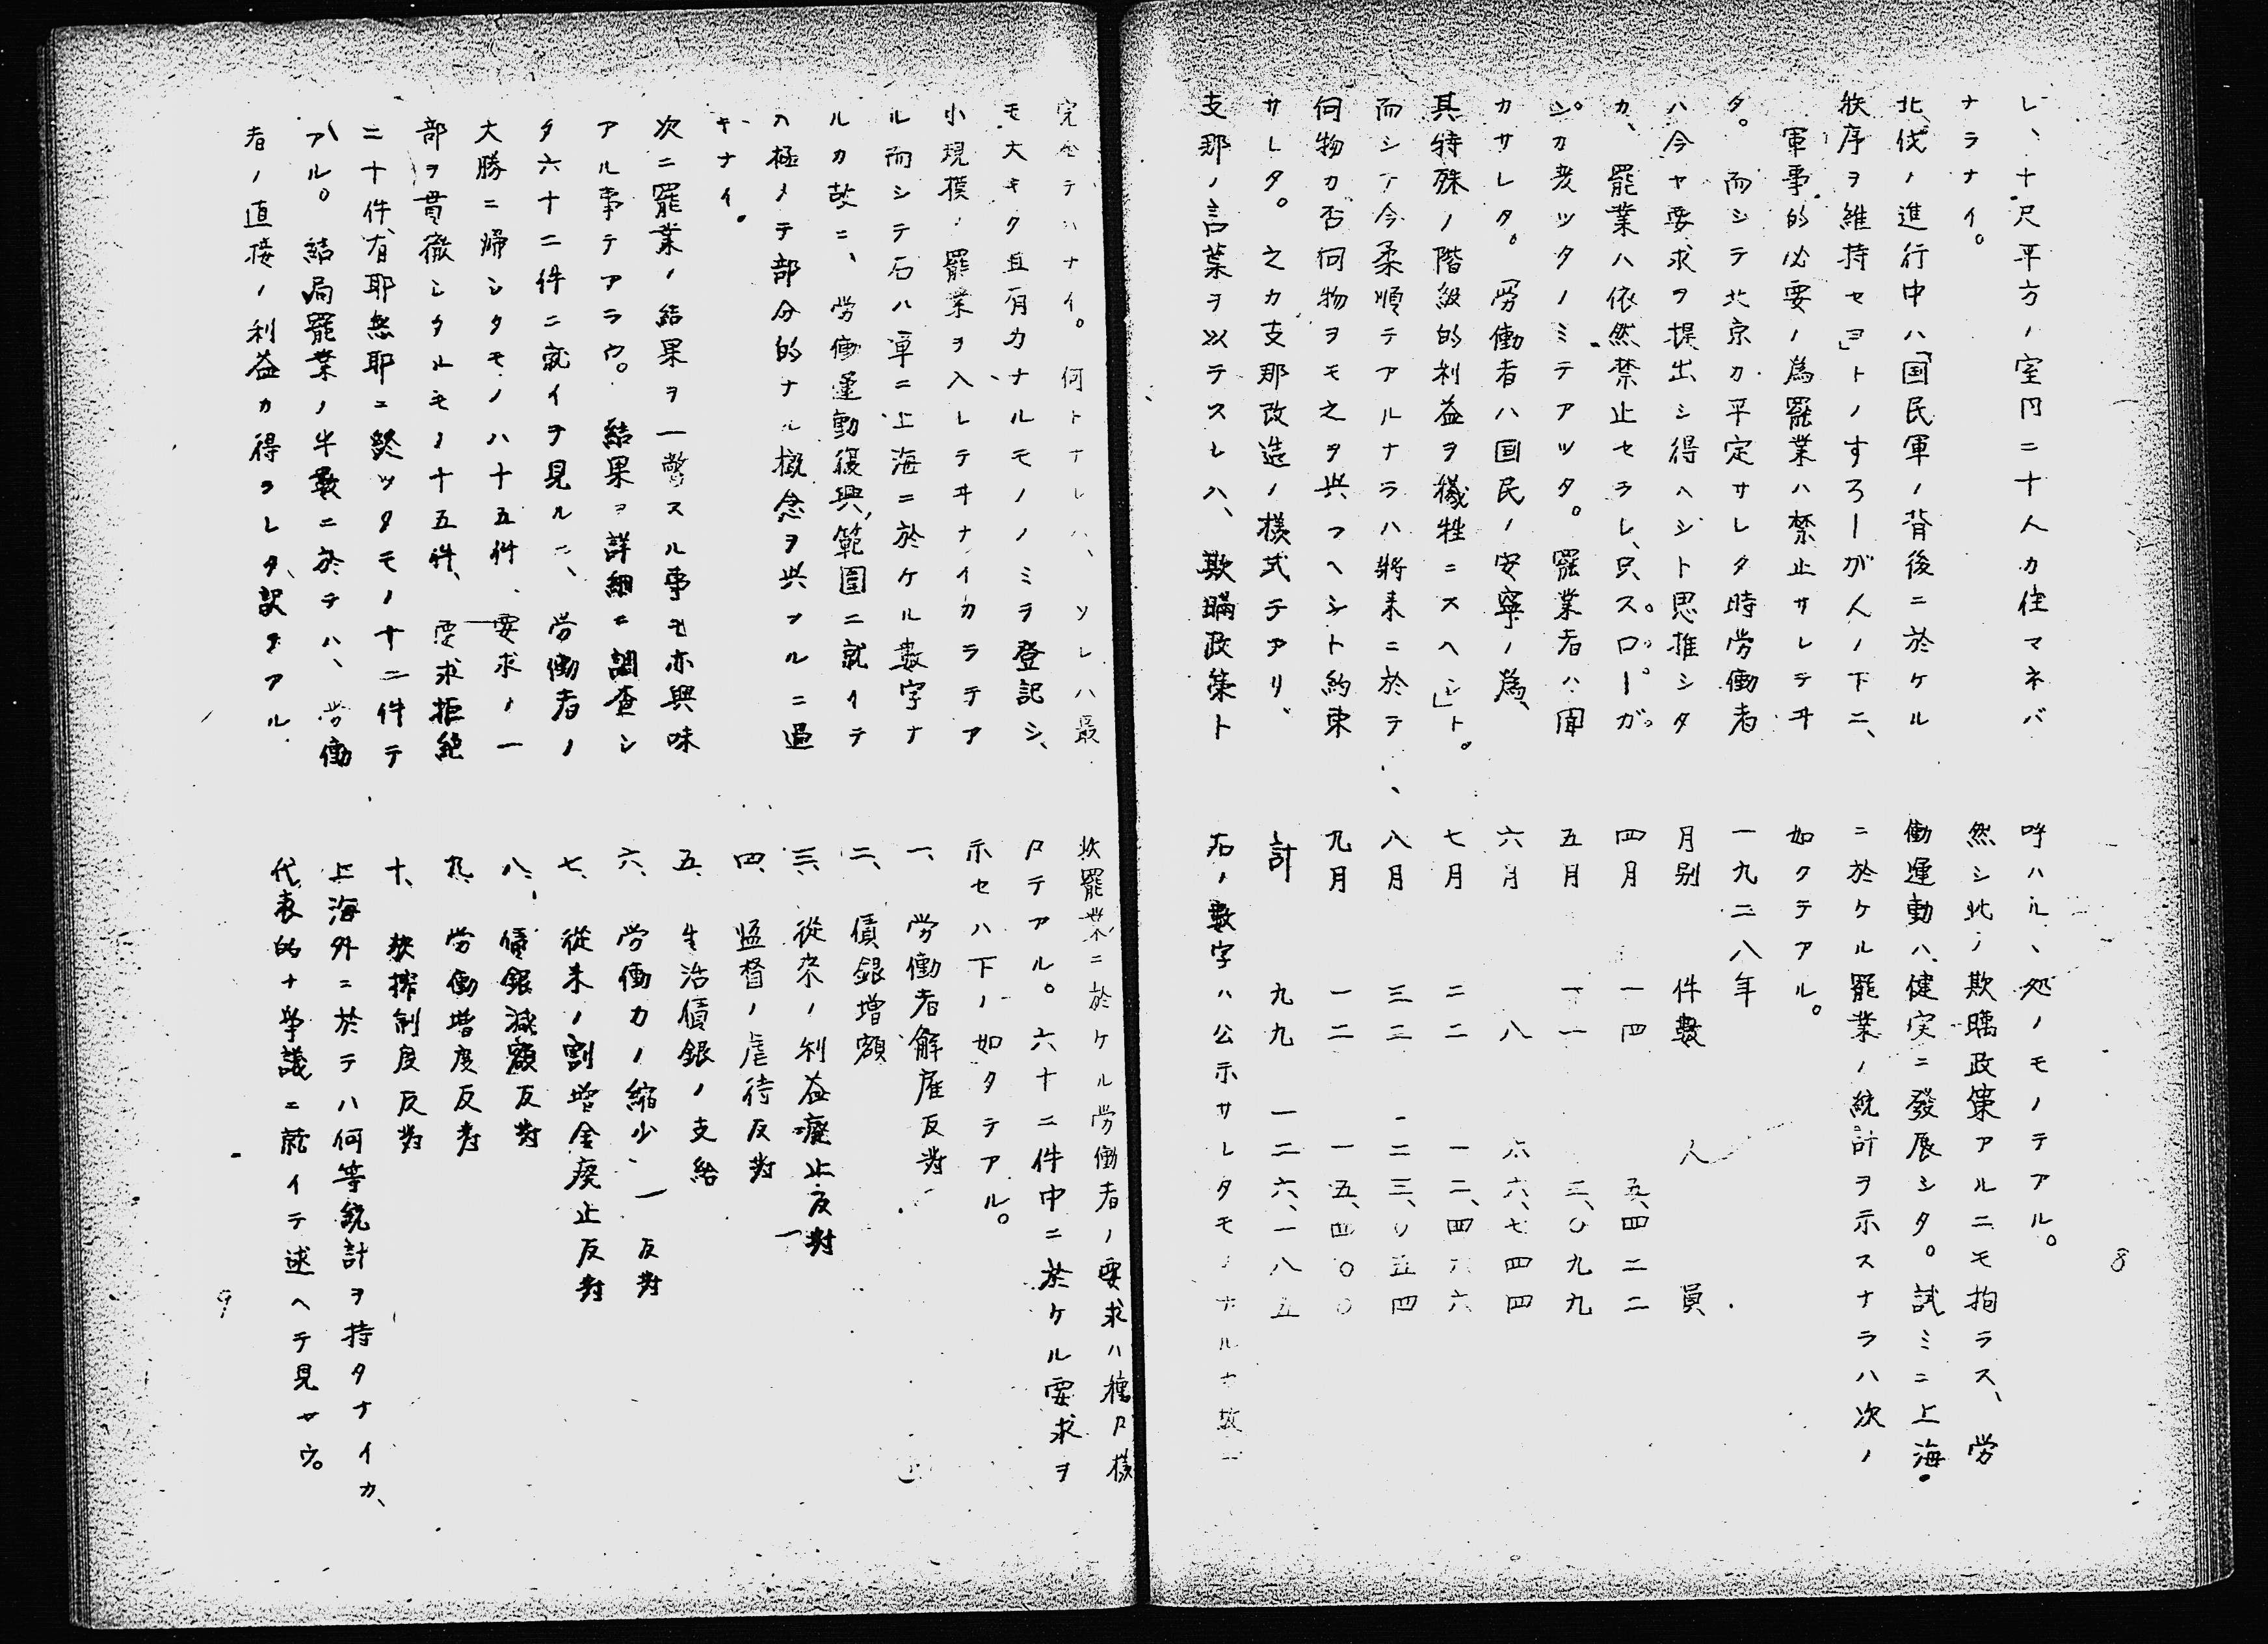 8
レ、十尺平方ノ室内ニ十人カ住マネバ
ナラナイ。
北伐ノ進行中ハ「国民軍ノ背後ニ於ケル
秩序ヲ維持セヨ」トノすろーが人ノ下ニ、
軍事的必要ノ為罷業ハ禁止サレテヰ
タ。而シテ北京カ平定サレタ時労働者
ハ今ヤ要求ヲ提出シ得ヘシト思推シタ
カ、罷業ハ依然禁止セラレ、只スローガ
ンカ変ツタノミテアツタ。罷業者ハ聞
カサレタ。「労働者ハ国民ノ安寧ノ為、
其特殊ノ階級的利益ヲ犠牲ニスヘシ」ト。
而シテ今柔順テアルナラハ將来ニ於テ
何物カ否何物ヲモ之ヲ与フヘシト約束
サレタ。之カ支那改造ノ様式テアリ、
支那ノ言葉ヲ以テスレハ、欺瞞政策ト
呼ハル、処ノモノテアル。
然シ此ノ欺瞞政策アルニモ拘ラス、労
働運動ハ健実ニ發展シタ。試ミニ上海
ニ於ケル罷業ノ統計ヲ示スナラハ次ノ
如クテアル。
一九二八年
月別 件數 人員
四月 一四 五、四二二
五月 一一 三、〇九九
六月 八 六六、七四四
七月 二二 一二、四六六
八月 三二 二三、〇五四
九月 一二 一五、四〇〇
計 九九 一二六、一八五
右ノ數字ハ公示サレタモノナルナ故ニ
完全テハナイ。何トナレハ、ソレハ最
モ大キク且有力ナルモノノミヲ登記シ、
小現模ノ罷業ヲ入レテヰナイカラテア
ル而シテ右ハ單ニ上海ニ於ケル數字ナ
ルカ故ニ、労働運動復興ノ範囲ニ就イテ
ハ極メテ部分的ナル概念ヲ与フルニ過
キナイ。
次ニ罷業ノ結果ヲ一瞥スル事モ亦興味
アル事テアラウ。結果ヲ詳細ニ調査シ
タ六十二件ニ就イテ見ルニ、労働者ノ
大勝ニ帰シタモノハ十五件、要求ノ一
部ヲ貫徹シタルモノ十五件、要求拒絶
二十件、有耶無耶ニ終ツタモノ十二件テ
アル。結局罷業ノ半數ニ於テハ、労働
者ノ直接ノ利益カ得ラレタ訳テアル。
次罷業ニ於ケル労働者ノ要求ハ種々様
々テアル。六十二件中ニ於ケル要求ヲ
示セハ下ノ如クテアル。
一、労働者解雇反対
二、賃銀増額
三、從来ノ利益廢止反対
四、監督ノ虐待反対
五、生活賃銀ノ支給
六、労働力ノ縮少反対
七、從来ノ割増金廃止反対
八、賃銀減額反対
九、労働増度反対
十、搾制度反対
上海外ニ於テハ何等統計ヲ持タナイカ、
代表的ナ争議ニ就イテ述ヘテ見ヤウ。
9